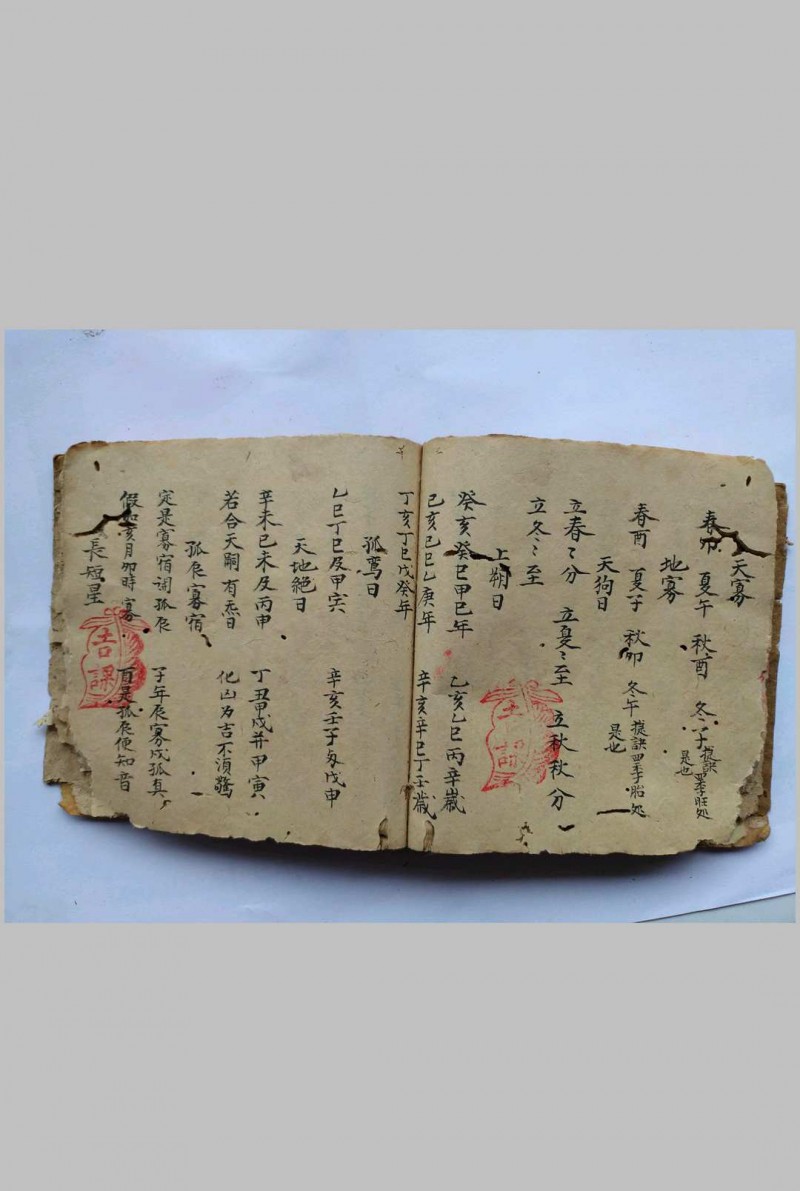 天寡
春卯 夏午 秋酉 冬子 捷訣四季旺处是也
地寡
春酉 夏子 秋卯 冬午 捷訣四季胎处是也
天狗日
立春〻分 立夏〻至 立秋秋分
立冬〻至
上朔日
癸亥癸巳甲巳年 乙亥乙巳丙辛歲
己亥己巳乙庚年 辛亥辛巳丁壬歲
丁亥丁巳戊癸年
孤鸞日
乙巳丁巳及甲寅 辛亥壬子与戊申
天地絕日
辛未己未及丙申 丁丑甲戌并甲寅
若合天嗣有焏日 化凶为吉不須驚
孤辰寡宿
定是寡宿调孤辰 子年辰寡戌孤真
假如亥月卯時寡 百是孤辰便知音
長短星
吉課
吉課